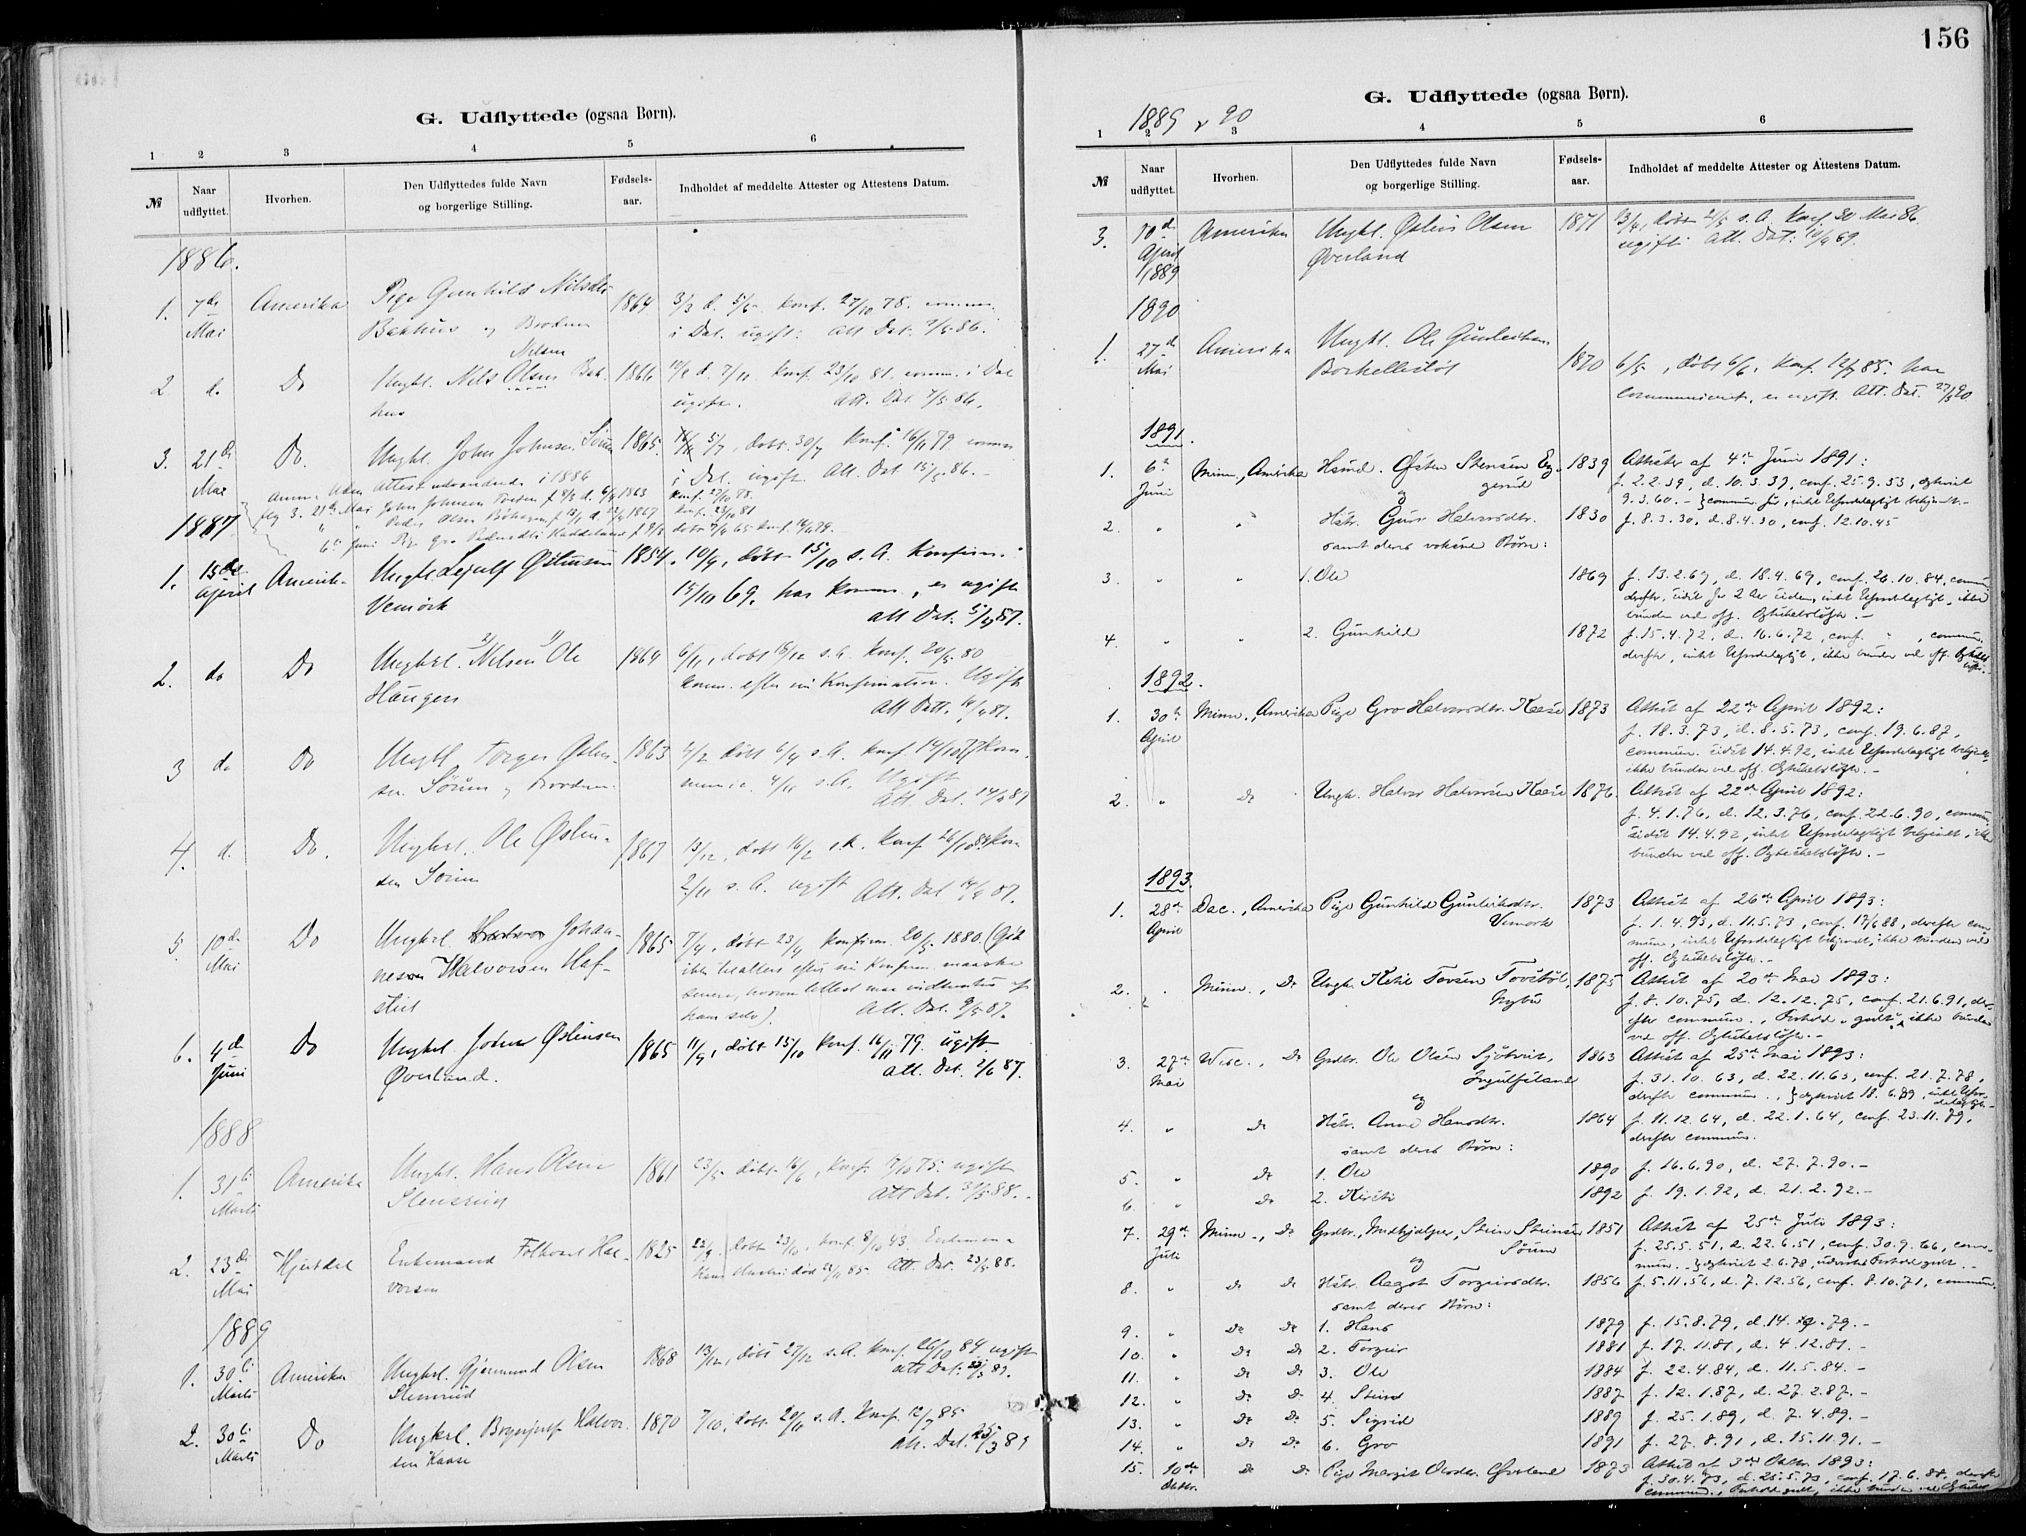 G. Udflyttede (ogsaa Børn).
1 2 3 4 5 6
№ Naar udflyttet. Hvorhen. Den Udflyttedes fulde Navn og borgerlige Stilling. Fødsels-aar. Indholdet af meddelte Attester og Attestens Datum.
1886.
1. 7de Amerika Pige Gunhild Nilsdtr 1864 3/3 d. 5/5 konf. 27/10 78. comm.
Mai Bakhus og Broderen i Dal. ugift. Att. Dat. 7/5 86.
Nilsen
2. do Do Ungkl. Nils Olsen Bak- 1866 d. 7/10 konf. 23/10 81. comm. i Dal
hus ugift. Att. Dat 7/5 86.
3. 21de Do. Ungkl. John Johnsen Sørum 1865. 5/7, døbt 30/7 konf. 16/11 79 comm
Mai i Dal. ugift. Att. Dat 15/5 86.
Anm. Uden Attest udvandrede i 1886
1887
1. 15de Amerika Ungkl. Leiulf Østensen 1854. 10/9, døbt 15/10 s. A. konfirm.
April Vemork 15/10 69. har komm., er ugift
att Dat. 5/4 87.
2. do Do Ungkrl. 2) Nilsen 1) Ole 1864 6/11, døbt 18/12 s. A. konf. 20/5 80
Haugen komm. efter sin Konfirmation. Ugift
Att Datt. 14/4 87.
3 do Do Ungkl Torger Østen- 1863 4/2 døbt 6/4 s. A. konf 14/10 77 kom-
sen Sørum og Broderen munic. 4/11 s. A. Ugift
Att. Dat. 14/4 87
4. d. Do. Ungkrl. Ole Østen- 1867 13/12, døbt 16/2 konf 26/10 84 kom
sen Sørum 2/11 s. A. ugift Att. Dat 14/4 87.
5. 10de Do Ungkrl. Johan- 1865 7/4, døbt 23/4 konfirm. 20/5 1880. (Gik
Mai nessen Halvorsen Haf- ikke til alters efter sin Konfirm. maaske
stul senere, hvorom
ham selv). Att. Dat. 9/5 87.
6. 4de Do Ungkrl. John Østensen 1865 11/9, døbt 15/10 konf. 16/11 79. ugift
Juni Øverland. att. Dat. 2/6 87.
1888
1. 31te Amerika Ungkl. Hans Olsen 1861 23/5 døbt 16/6, konf. 7/10 75. ugift
Marts Stensrud Att Dat. 31/3 88.
2. 23de Hjertdal Enkemand Folkvart Hal- 1825 22/9. døbt 23/10, konf 8/10 43. Enkeman
Mai vorsen Hans Hustru død 22/11 85. Att. Dat. 23/5 88.
1889
1. 30te Amerika Ungkrl. Gjermund Olsen 1868 13/12, døbt 27/12 s. A. konf. 26/10 84 ugift
Marts Stensrud att Dat. 25/3 89.
2. 30te Do Ungkrl. Brynjulf Halvor- 1870 7/10, døbt 20/11 s. A. konf. 12/7 85
Marts sen Kaase att. Dat. 25/3 89
156
G. Udflyttede (ogsaa Børn).
1889 & 90
1 2 3 4 5 6
№ Naar udflyttet. Hvorhen. Den Udflyttedes fulde Navn og borgerlige Stilling. Fødsels-aar. Indholdet af meddelte Attester og Attestens Datum.
3. 10de Amerika Ungkl. Østen Olsen 1871 13/4, døbt 21/5 s. A. konf 30 Mai 86
April Øverland ugift. Att. Dat: 10/4 89.
1889
1890
1. 27de Amerika Ungkl. Ole Gunleiksen
Mai Borkellistøl 1870 6/5, døbt 6/6, konf. 12/7 85. har
communiceret, er ugift. Att. Dat. 27/5 90
1891.
1. 6te Minn., Amerika Hsmd. Østen Stensen Eg- 1839 Attester af 4de Juni 1891:
Juni gerud f. 2.2.39, d. 10.3.39, conf. 25.9.53, egteviet
og 9.3.60. commun. før, intet Ufordelagtigt bekjendt.
2. " " Hstr. Guro Halvorsdtr. 1830 f. 8.3.30, d. 8.4.30, conf. 12.10.45
samt deres voksne Børn:
3. " " 1. Ole 1869 f. 13.2.69, d. 18.4.69, conf. 26.10.84, commun.
derefter, sidst for 2 Aar siden, intet Ufordelagtigt, ikke
bunden ved off. Egteskabsløfte. -
4. " " 2. Gunhild 1872 f. 15.4.72, d. 16.6.72, conf. " , commun.
derefter, intet Ufordelagtigt, ikke bunden ved off. Egteskabsløfte.
1892.
1. 30te Minn., Amerika Pige Gro Halvorsdtr. Kaase 1873 Attest af 22de April 1892:
April f. 18.3.73, d. 8.5.73, conf. 19.6.87,
commun. sidst 14.4.92, intet Ufordelagtigt bekjendt,
ikke bunden ved off. Egteskabsløfte. -
2. " Do Ungk. Halvor Halvorsen Kaase 1876. Attest af 22de April 1892:
f. 4.1.76, d. 12.3.76, conf. 22.6.90, commun.
sidst 14.4.92, intet Ufordelagtigt bekjendt, ikke
bunden ved off. Egteskabsløfte. -
1893.
1. 28de Dac., Amerika Pige Gunhild Gunleiksdtr. 1873 Attest af 26de April 1893:
April Vemork f. 1.4.73, d. 11.5.73, conf. 17/6 88, derefter com
mun., intet Ufordelagtigt bekjendt, ikke bunden ved
off. Egteskabsløfte. -
2. " Minn., Do Ungk. Ketil Torsen Tovsbøl, 1875 Attest af 20de Mai 1893:
Nybu f. 8.10.75, d. 12.12.75, conf. 21.6.91, der-
efter commun., Forhold "godt", ikke bunden
ved off. Egteskabsløfte. -
3. 27de Wisc., Do Grdbr. Ole Olsen Sjøtveit, 1863 Attest af 25de Mai 1893:
Mai Ingulfsland f. 31.10.63, d. 22.11.63, conf. 21.7.78,
og derefter commun., egteviet 18.6.89, intet Ufor-
delagtigt. -
4. " Do Hstr. Anne Hansdtr. 1864 f. 11.12.64, d. 22.1.64, conf. 23.11.79,
samt deres Børn: derefter commun.
5. " Do 1. Ole 1890 f. 16.6.90, d. 27.7.90. -
6. " Do 2. Kirsti 1892 f. 19.1.92, d. 21.2.92. -
7. 29de Minn., Do Grdbr., Medhjælper, Stein Steinsen 1851 Attest af 25de Juli 1893:
Juli Sørum f. 25.5.51, d. 22.6.51, conf. 30.9.66, com-
og mun. - egteviet 2.6.78, Forhold godt. -
8. " Do Do Hstr. Aagot Torgeirsdtr. 1856 f. 5.11.56, d. 7.12.56, conf. 8.10.71, commun.
samt deres Børn:
9. " Do Do 1. Hans 1879 f. 15.8.79, d. 14.  .79. -
10. " Do Do 2. Torgeir 1881 f. 17.11.81, d. 4.12.81. -
11. " Do Do 3. Ole 1884 f. 22.4.84, d. 11.5.84. -
12. " Do Do 4. Stein 1887 f. 12.1.87, d. 27.2.87. -
13. " Do Do 5. Sigrid 1889 f. 25.1.89, d. 7.4.89. -
14. " Do Do 6. Gro 1891 f. 27.8.91, d. 15.11.91. -
15. 10de Do Do Pige Margit Olsdtr. Øverland 1873 Attest af 3die Oktbr. 1893:
Oktbr. f. 30.4.73, d. 25.5.73, conf. 17.6.88, derefter
commun., Forhold godt, ikke bunden ved Egteskabs